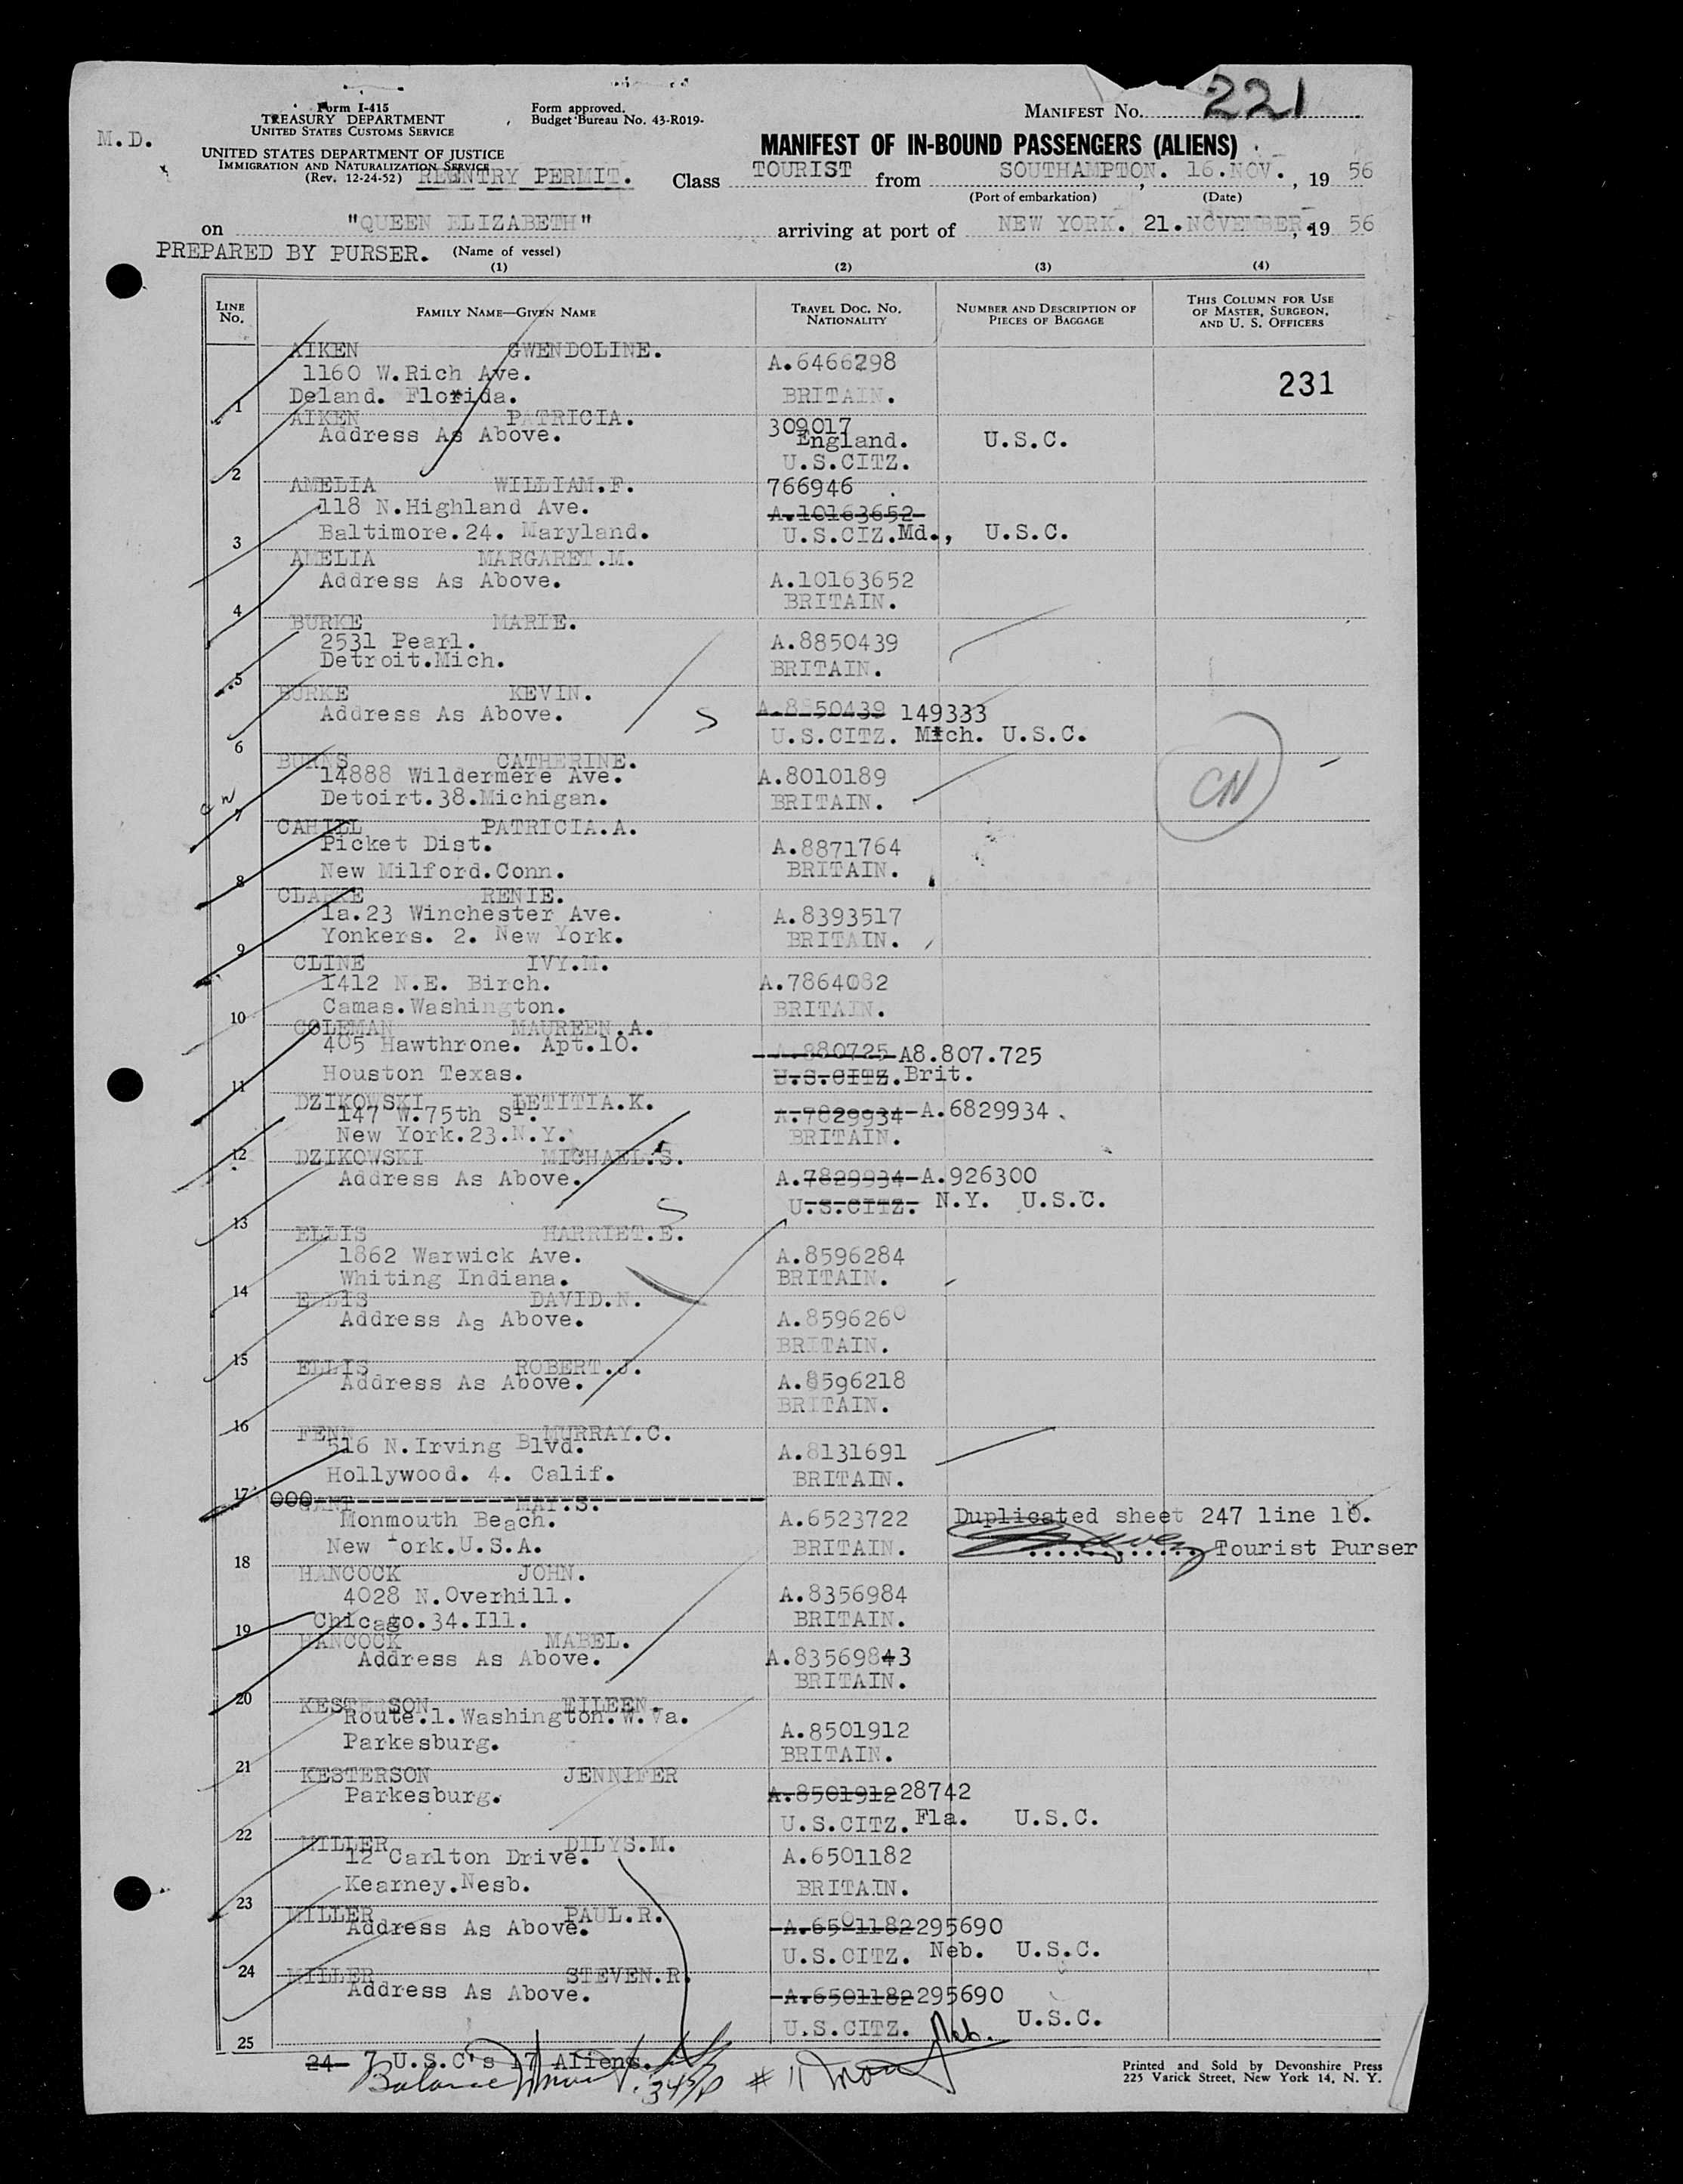 Form I-415
TREASURY DEPARTMENT
UNITED STATES CUSTOMS SERVICE
Form approved.
Budget Bureau No. 43-R019-
MANIFEST No. 221
M.D.
UNITED STATES DEPARTMENT OF JUSTICE
IMMIGRATION AND NATURALIZATION SERVICE
(Rev. 12-24-52) REENTRY PERMIT.
MANIFEST OF IN-BOUND PASSENGERS (ALIENS)
Class TOURIST from SOUTHAMPTON. 16.NOV. , 19 56
(Port of embarkation) (Date)
on "QUEEN ELIZABETH" arriving at port of NEW YORK. 21.NOVEMBER. , 19 56
PREPARED BY PURSER. (Name of vessel)
(1) (2) (3) (4)
LINE No. FAMILY NAME—GIVEN NAME TRAVEL DOC. NO. NATIONALITY NUMBER AND DESCRIPTION OF PIECES OF BAGGAGE THIS COLUMN FOR USE OF MASTER, SURGEON, AND U. S. OFFICERS
AIKEN GWENDOLINE.
1160 W.Rich Ave. A.6466298
Deland. Florida. BRITAIN. 231
1
AIKEN PATRICIA. 309017
Address As Above. England. U.S.C.
U.S.CITZ.
2
AMELIA WILLIAM.F. 766946
118 N.Highland Ave. A.10163652
Baltimore.24. Maryland. U.S.CIZ.Md., U.S.C.
3
AMELIA MARGARET.M.
Address As Above. A.10163652
BRITAIN.
4
BURKE MARIE.
2531 Pearl. A.8850439
Detroit.Mich. BRITAIN.
5
BURKE KEVIN.
Address As Above. S A.8850439 149333
U.S.CITZ. Mich. U.S.C.
6
BURNS CATHERINE.
14888 Wildermere Ave. A.8010189 CN
Detoirt.38.Michigan. BRITAIN.
cn
7
CAHILL PATRICIA.A.
Picket Dist. A.8871764
New Milford.Conn. BRITAIN.
8
CLARKE RENIE.
1a.23 Winchester Ave. A.8393517
Yonkers. 2. New York. BRITAIN.
9
CLINE IVY.M.
1412 N.E. Birch. A.7864082
Camas.Washington. BRITAIN.
10
COLEMAN MAUREEN.A.
405 Hawthrone. Apt.10. A.880725 A8.807.725
Houston Texas. U.S.CITZ.Brit.
11
DZIKOWSKI LETITIA.K.
147 W.75th St. A.7829934 A.6829934
New York.23.N.Y. BRITAIN.
12
DZIKOWSKI MICHAEL.S.
Address As Above. A.7829934 A.926300
S U.S.CITZ. N.Y. U.S.C.
13
ELLIS HARRIET.E.
1862 Warwick Ave. A.8596284
Whiting Indiana. BRITAIN.
14
ELLIS DAVID.N.
Address As Above. A.8596260
BRITAIN.
15
ELLIS ROBERT.J.
Address As Above. A.8596218
BRITAIN.
16
FENN MURRAY.C.
516 N.Irving Blvd. A.8131691
Hollywood. 4. Calif. BRITAIN.
17
000 MAY.S.
Monmouth Beach. A.6523722 Duplicated sheet 247 line 10.
New York.U.S.A. BRITAIN. Tourist Purser
18
HANCOCK JOHN.
4028 N.Overhill. A.8356984
Chicago.34.Ill. BRITAIN.
19
HANCOCK MABEL.
Address As Above. A.83569843
BRITAIN.
20
KESTERSON EILEEN.
Route.1.Washington.W.Va. A.8501912
Parkesburg. BRITAIN.
21
KESTERSON JENNIFER
Parkesburg. A.8501912 28742
U.S.CITZ. Fla. U.S.C.
22
MILLER DILYS.M.
12 Carlton Drive. A.6501182
Kearney.Nesb. BRITAIN.
23
MILLER PAUL.R.
Address As Above. A.6501182 295690
U.S.CITZ. Neb. U.S.C.
24
MILLER STEVEN.R.
Address As Above. A.6501182 295690
U.S.CITZ. Neb. U.S.C.
25
24 7 U.S.C's 17 Aliens.
Balance
Printed and Sold by Devonshire Press
225 Varick Street, New York 14, N. Y.